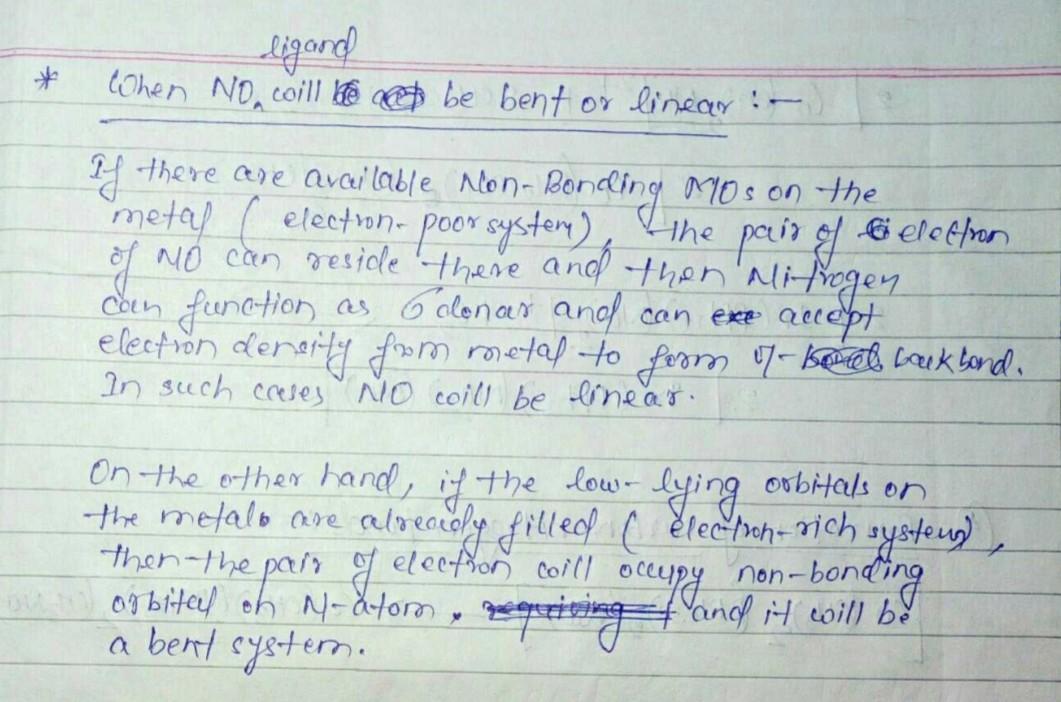 ligand
* When NO, will be bent or linear :-
If there are available Non-Bonding MOs on the
metal ( electron-poor system), the pair of electron
of NO can reside there and then Nitrogen
can function as σ donar and can accept
electron density from metal to form π- back bond.
In such cases NO will be linear.
On the other hand, if the low-lying orbitals on
the metals are already filled ( electron-rich system),
then the pair of electron will occupy non-bonding
orbital on N-atom, and it will be
a bent system.